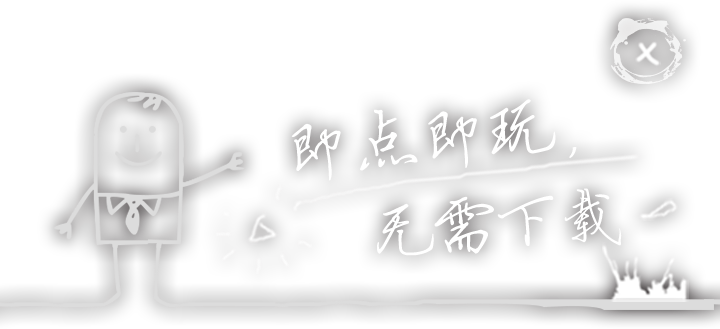 即点即玩，
无需下载